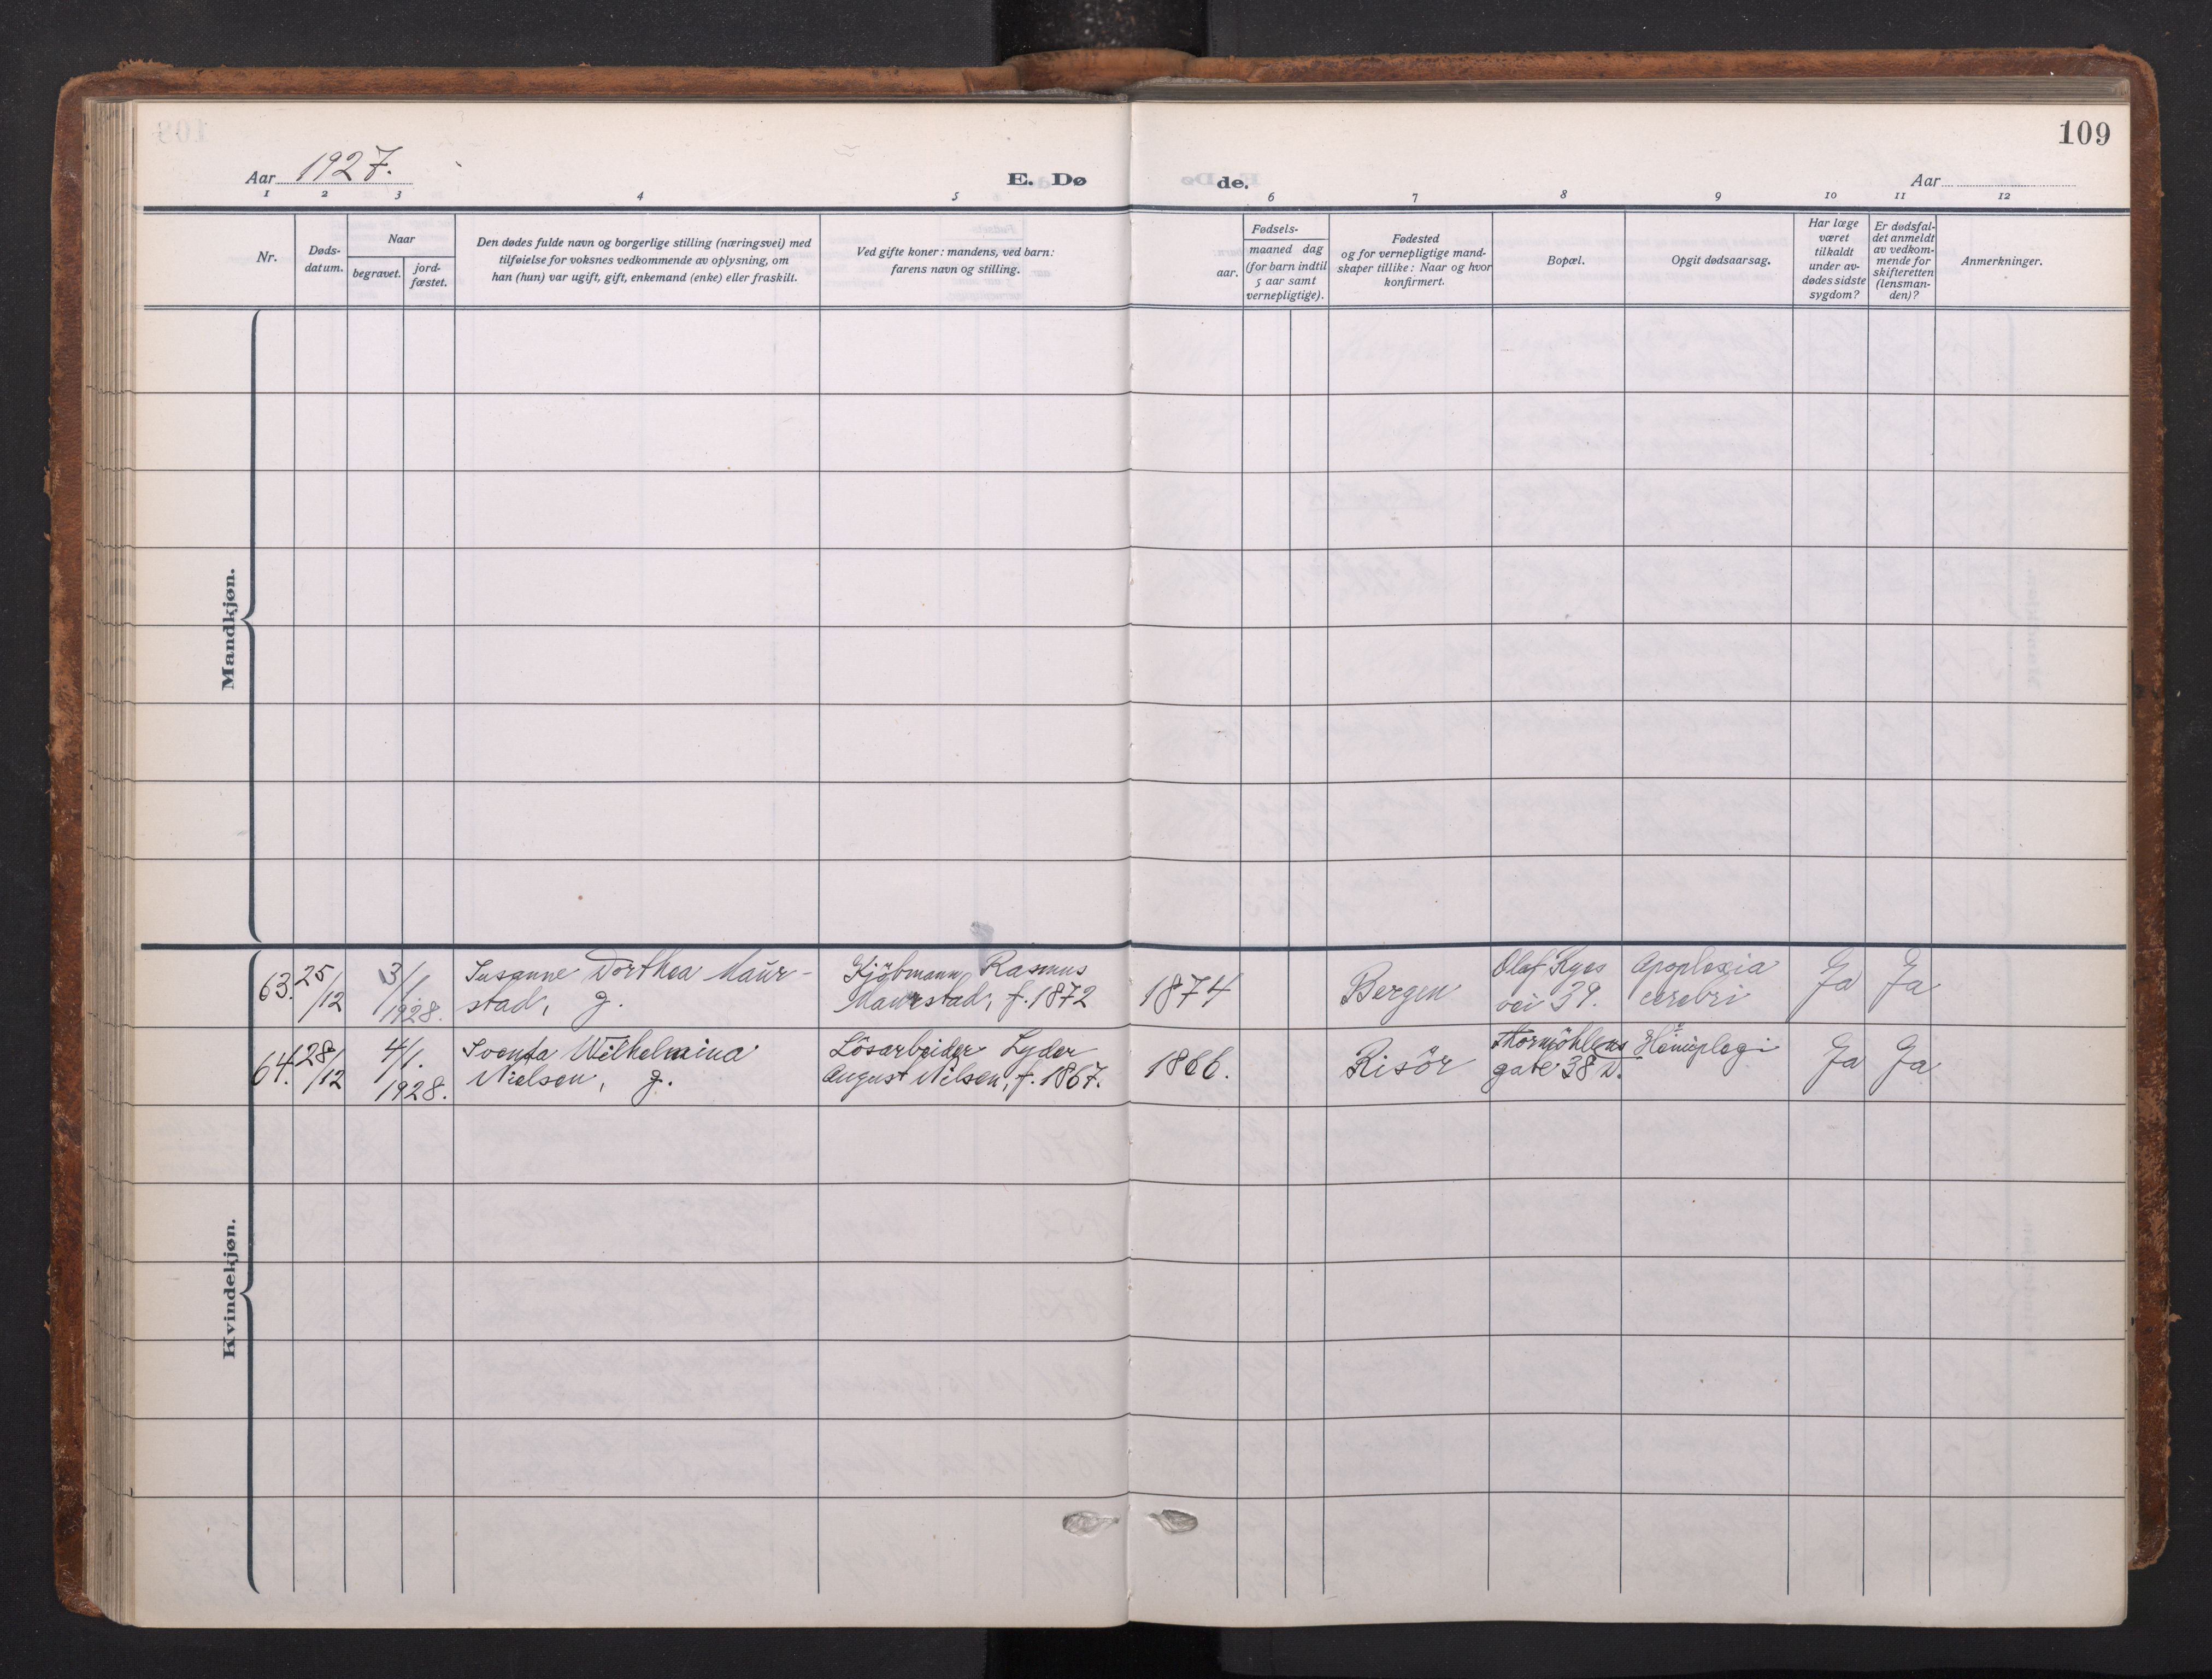 109
Aar 1927.
E. Dø
de.
Aar
1 2 3 4 5 6 7 8 9 10 11 12
Nr.
Døds-
datum.
Naar
begravet.
jord-
fæstet.
Den dødes fulde navn og borgerlige stilling (næringsvei) med
tilføielse for voksnes vedkommende av oplysning, om
han (hun) var ugift, gift, enkemand (enke) eller fraskilt.
Ved gifte koner: mandens, ved barn:
farens navn og stilling.
Fødsels-
aar.
maaned dag
(for barn indtil
5 aar samt
vernepligtige).
Fødested
og for vernepligtige mand-
skaper tillike: Naar og hvor
konfirmert.
Bopæl.
Opgit dødsaarsag.
Har læge
været
tilkaldt
under av-
dødes sidste
sygdom?
Er dødsfal-
det anmeldt
av vedkom-
mende for
skifteretten
(lensman-
den)?
Anmerkninger.
Mandkjøn.
Kvindekjøn.
63.
25/12
3/1
1928.
Susanne Dorthea Maur-
stad, g.
Kjöbmann Rasmus
Maurstad, f. 1872
1874
Bergen
Olaf Ryes
vei 39.
Apoplexia
cerebri
Ja
Ja
64.
28/12
4/1.
1928.
Svenda Wilhelmina
Nielsen, g.
Lösarbeider Lyder
August Nilsen, f. 1867.
1866.
Risör
Thormöhlens
gate 38 D.
Hemiplegi
Ja
Ja